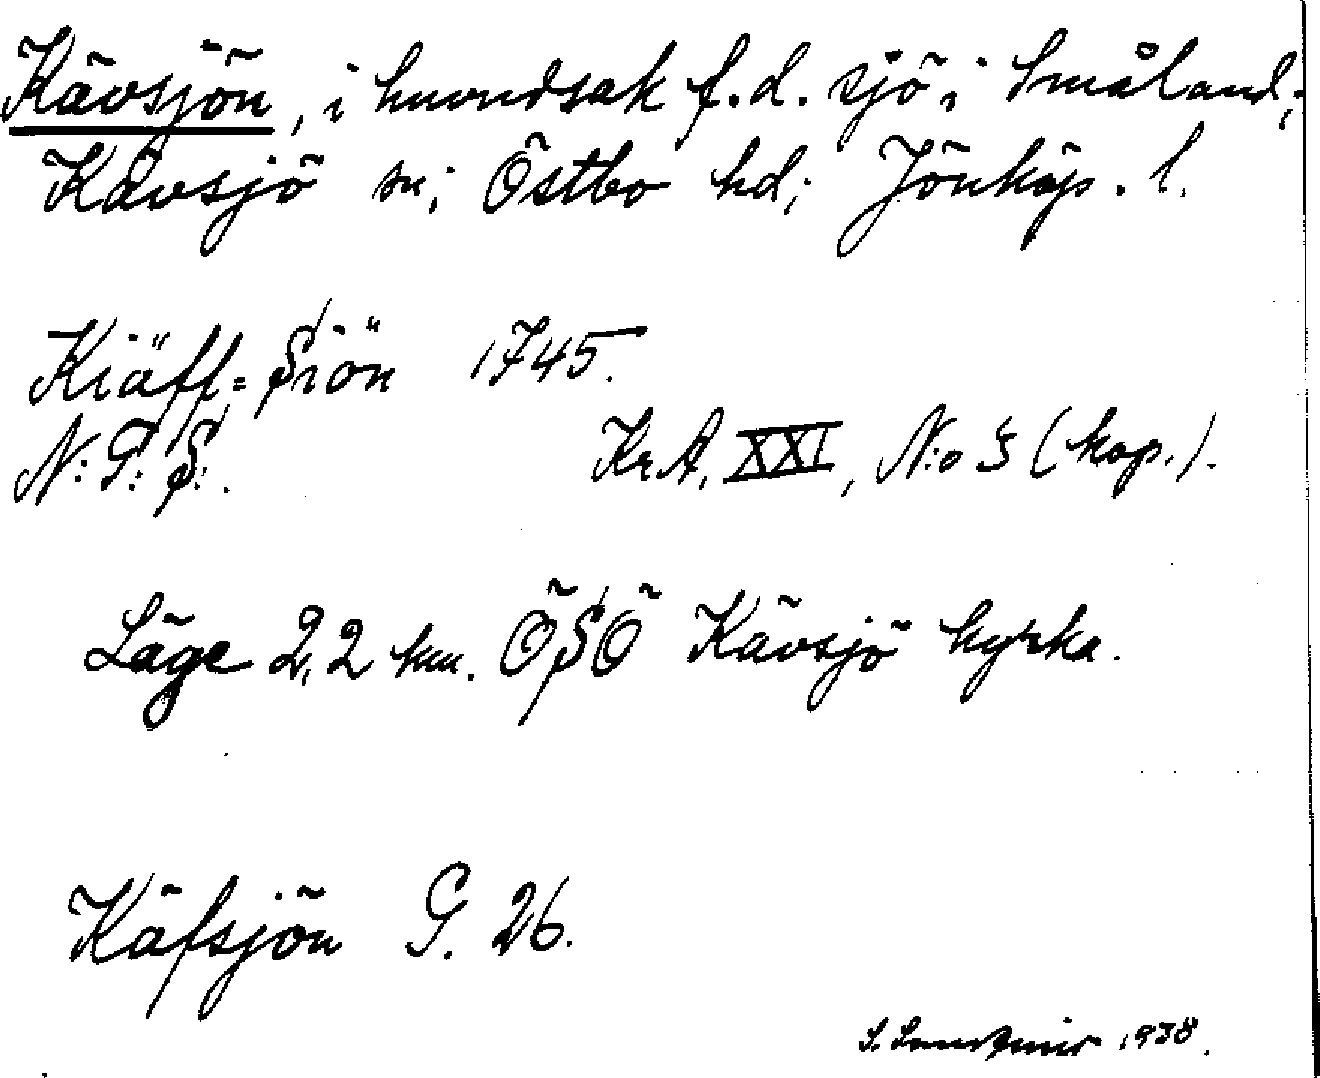 Kävsjön, i huvudsak f.d. sjö i Småland;
Kävsjö sn; Östbo hd; Jönköp. l.
Kiäff=Siön 1745.
N: G: S:. Kr.A. XXI, N:o 3 (kop.).
Läge 2,2 km. ÖSÖ Kävsjö kyrka.
Käfsjön G. 26.
S. 1938.